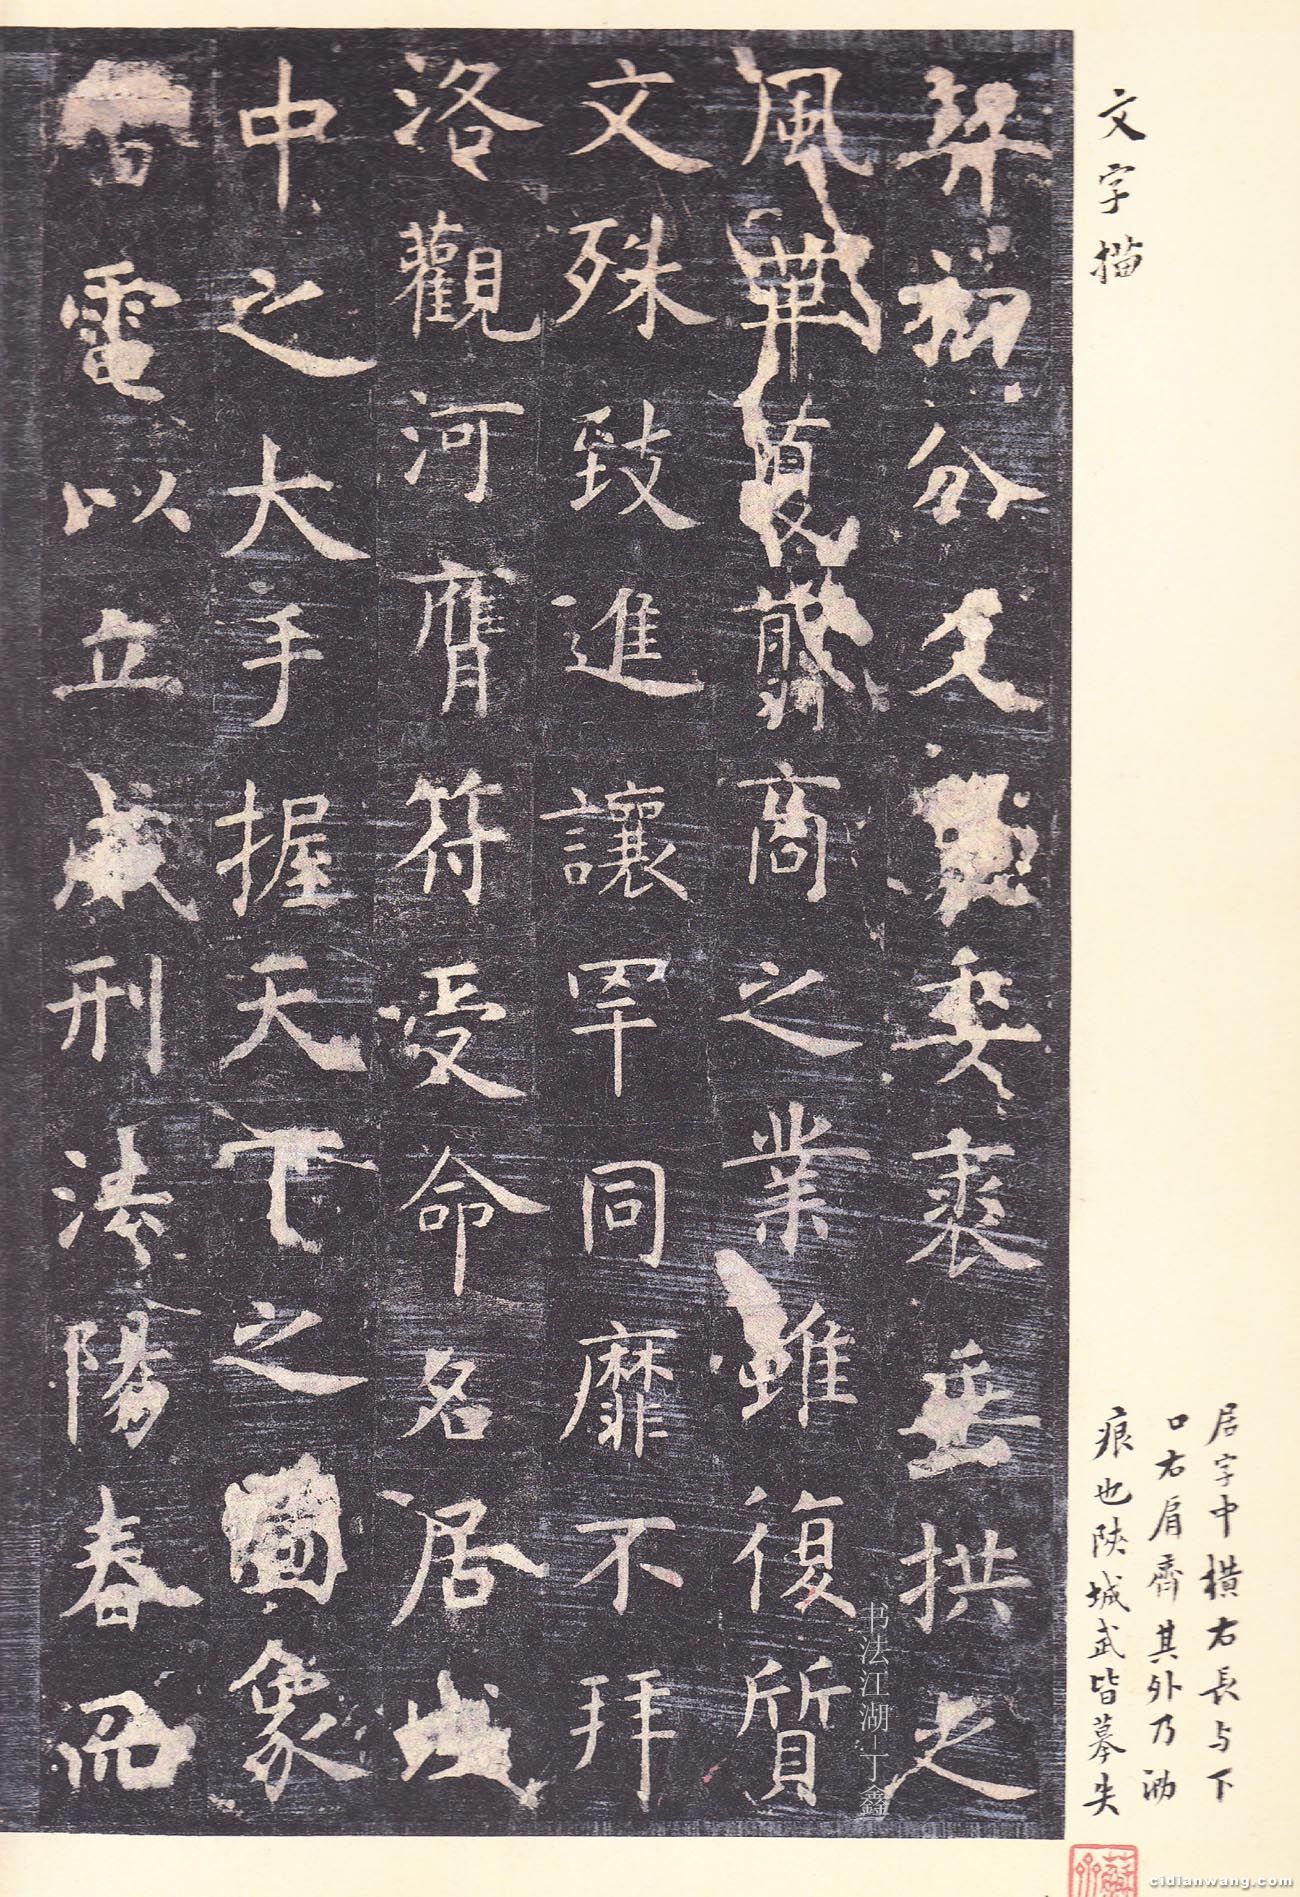 居字中橫右長与下
口右肩齊其外乃泐
痕也陝城武皆摹失
文字描
契初分爻象委裘垂拱之
風華夏翦商之業雖復質
文殊致進讓罕同靡不拜
洛觀河膺符受命名居域
中之大手握天下之圖象
雷電以立威刑法陽春而
书法江湖-丁鑫
cidianwang.com